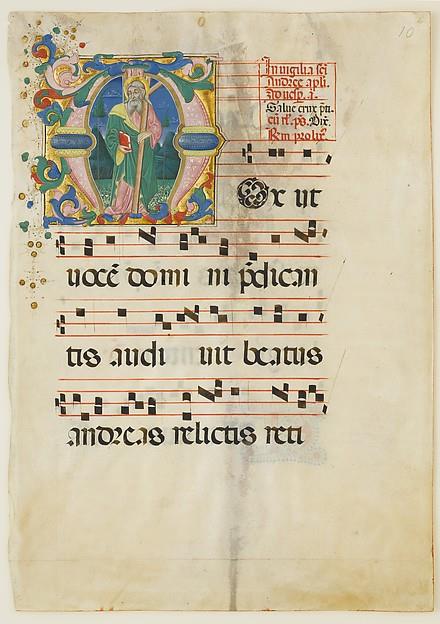 10
In vigilia sci
andree apli.
ad uesp. a.
Salue crux p̄ti
cū rł. ps. Dix.
Rm prolix.
Ox ut
uocē domi ni p̄dican
tis audi uit beatus
andreas relictis reti